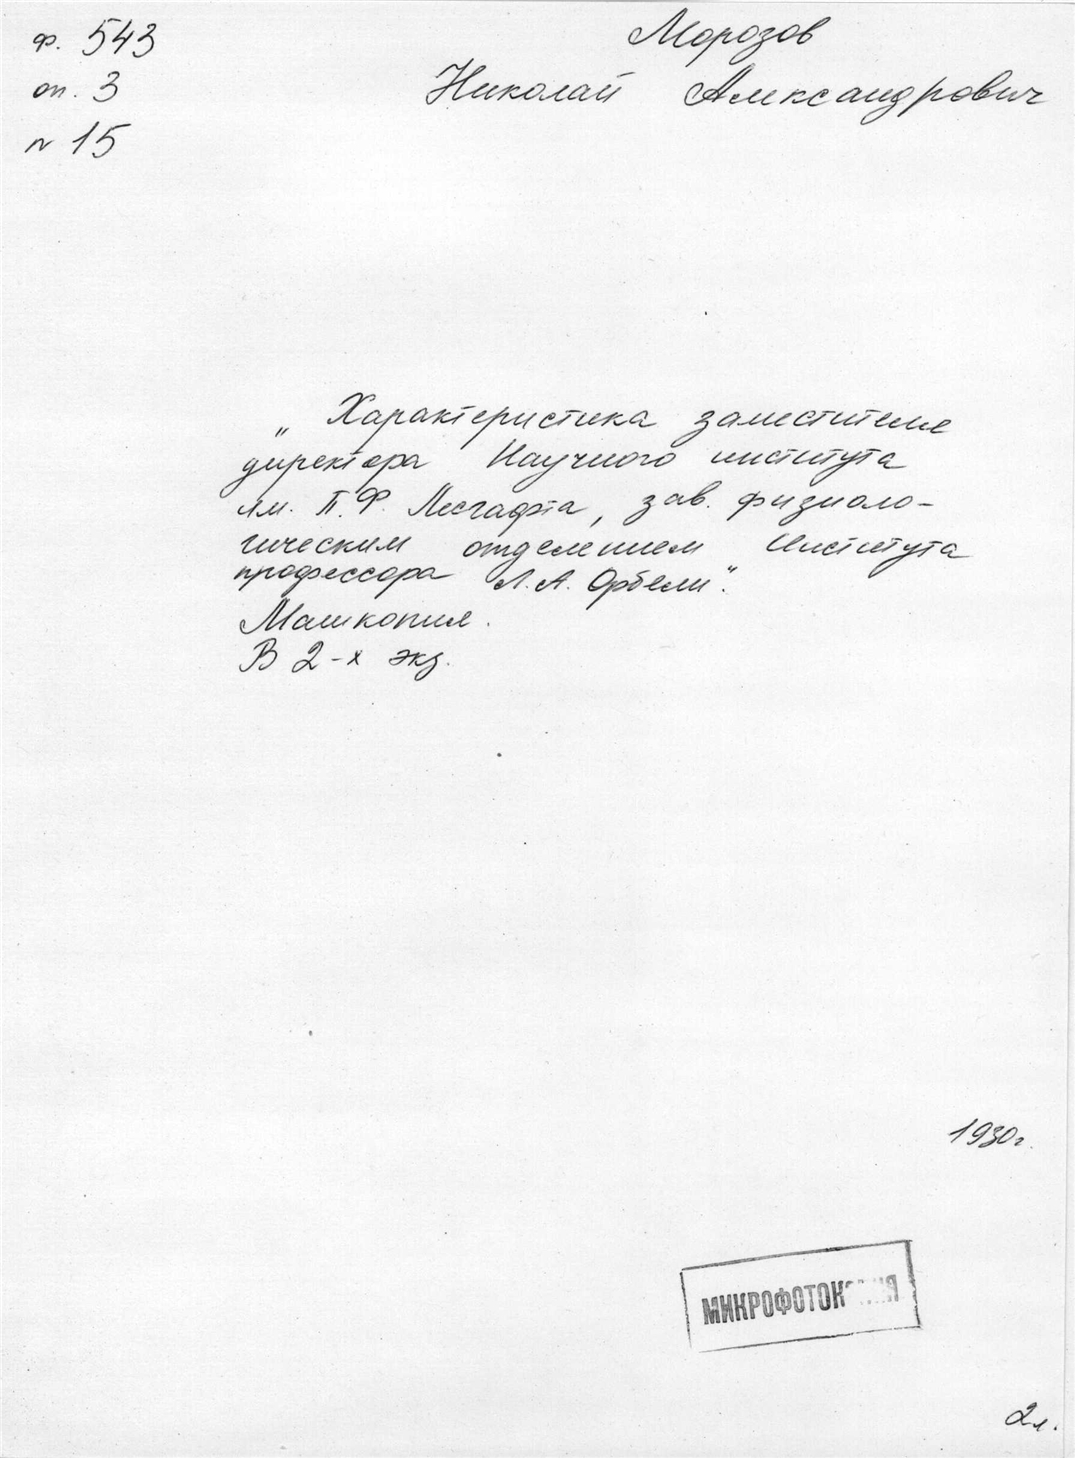 ф. 543
оп. 3
№ 15
Морозов
Николай Александрович
„Характеристика заместителя
директора Научного института
им. П.Ф. Лесгафта, зав. физиоло-
гическим отделением Института
профессора Л.А. Орбели".
Машкопия.
В 2-х экз.
1930 г.
МИКРОФОТОКОПИЯ
2 л.